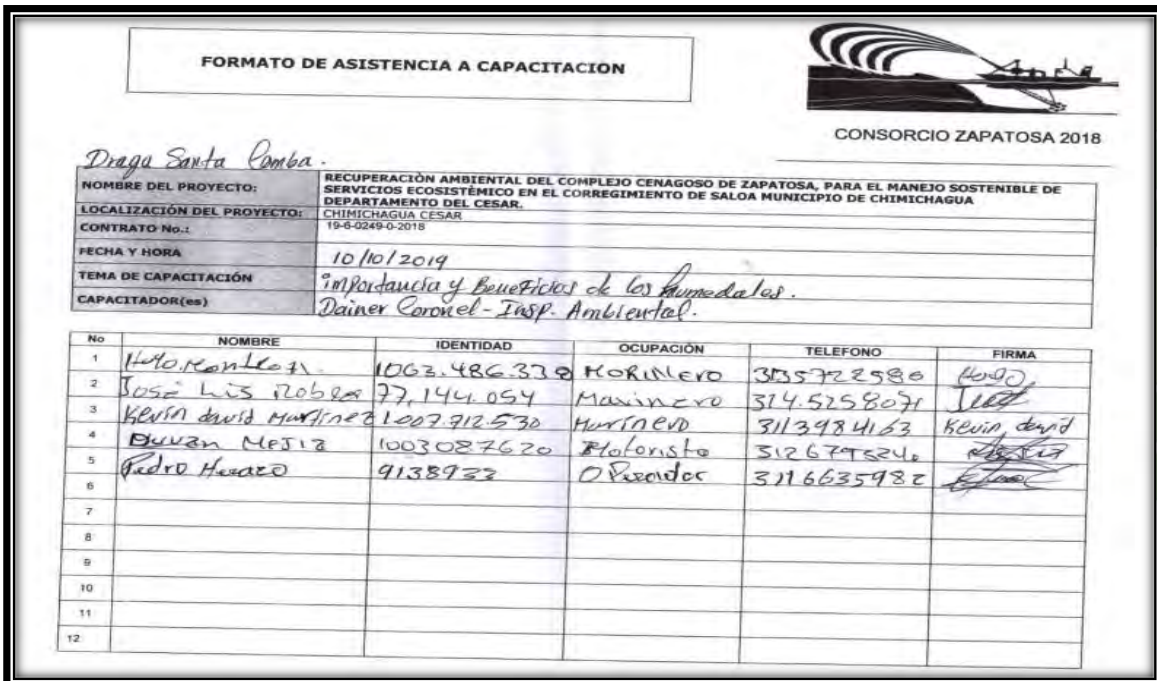 FORMATO DE ASISTENCIA A CAPACITACION
CONSORCIO ZAPATOSA 2018
Draga Santa Comba.
NOMBRE DEL PROYECTO: RECUPERACIÒN AMBIENTAL DEL COMPLEJO CENAGOSO DE ZAPATOSA, PARA EL MANEJO SOSTENIBLE DE
SERVICIOS ECOSISTÈMICO EN EL CORREGIMIENTO DE SALOA MUNICIPIO DE CHIMICHAGUA
DEPARTAMENTO DEL CESAR.
LOCALIZACIÓN DEL PROYECTO: CHIMICHAGUA CESAR
CONTRATO No.: 19-6-0249-0-2018
FECHA Y HORA 10/10/2019
TEMA DE CAPACITACIÓN importancia y Beneficios de los humedales.
CAPACITADOR(es) Dainer Coronel - Insp. Ambiental.
No NOMBRE IDENTIDAD OCUPACIÓN TELEFONO FIRMA
1 1063.486.338 MORINERO 3135722586 Hugo
2 José Luis Robles 77,144.054 Marinero 314.5258071
3 Kevin david Martinez 1007.712.530 Marinero 3113984163 Kevin david
4 Duvan Mejia 1003087620 Motorista 3126795240
5 Pedro 9138933 Operador 3116635982
6
7
8
9
10
11
12